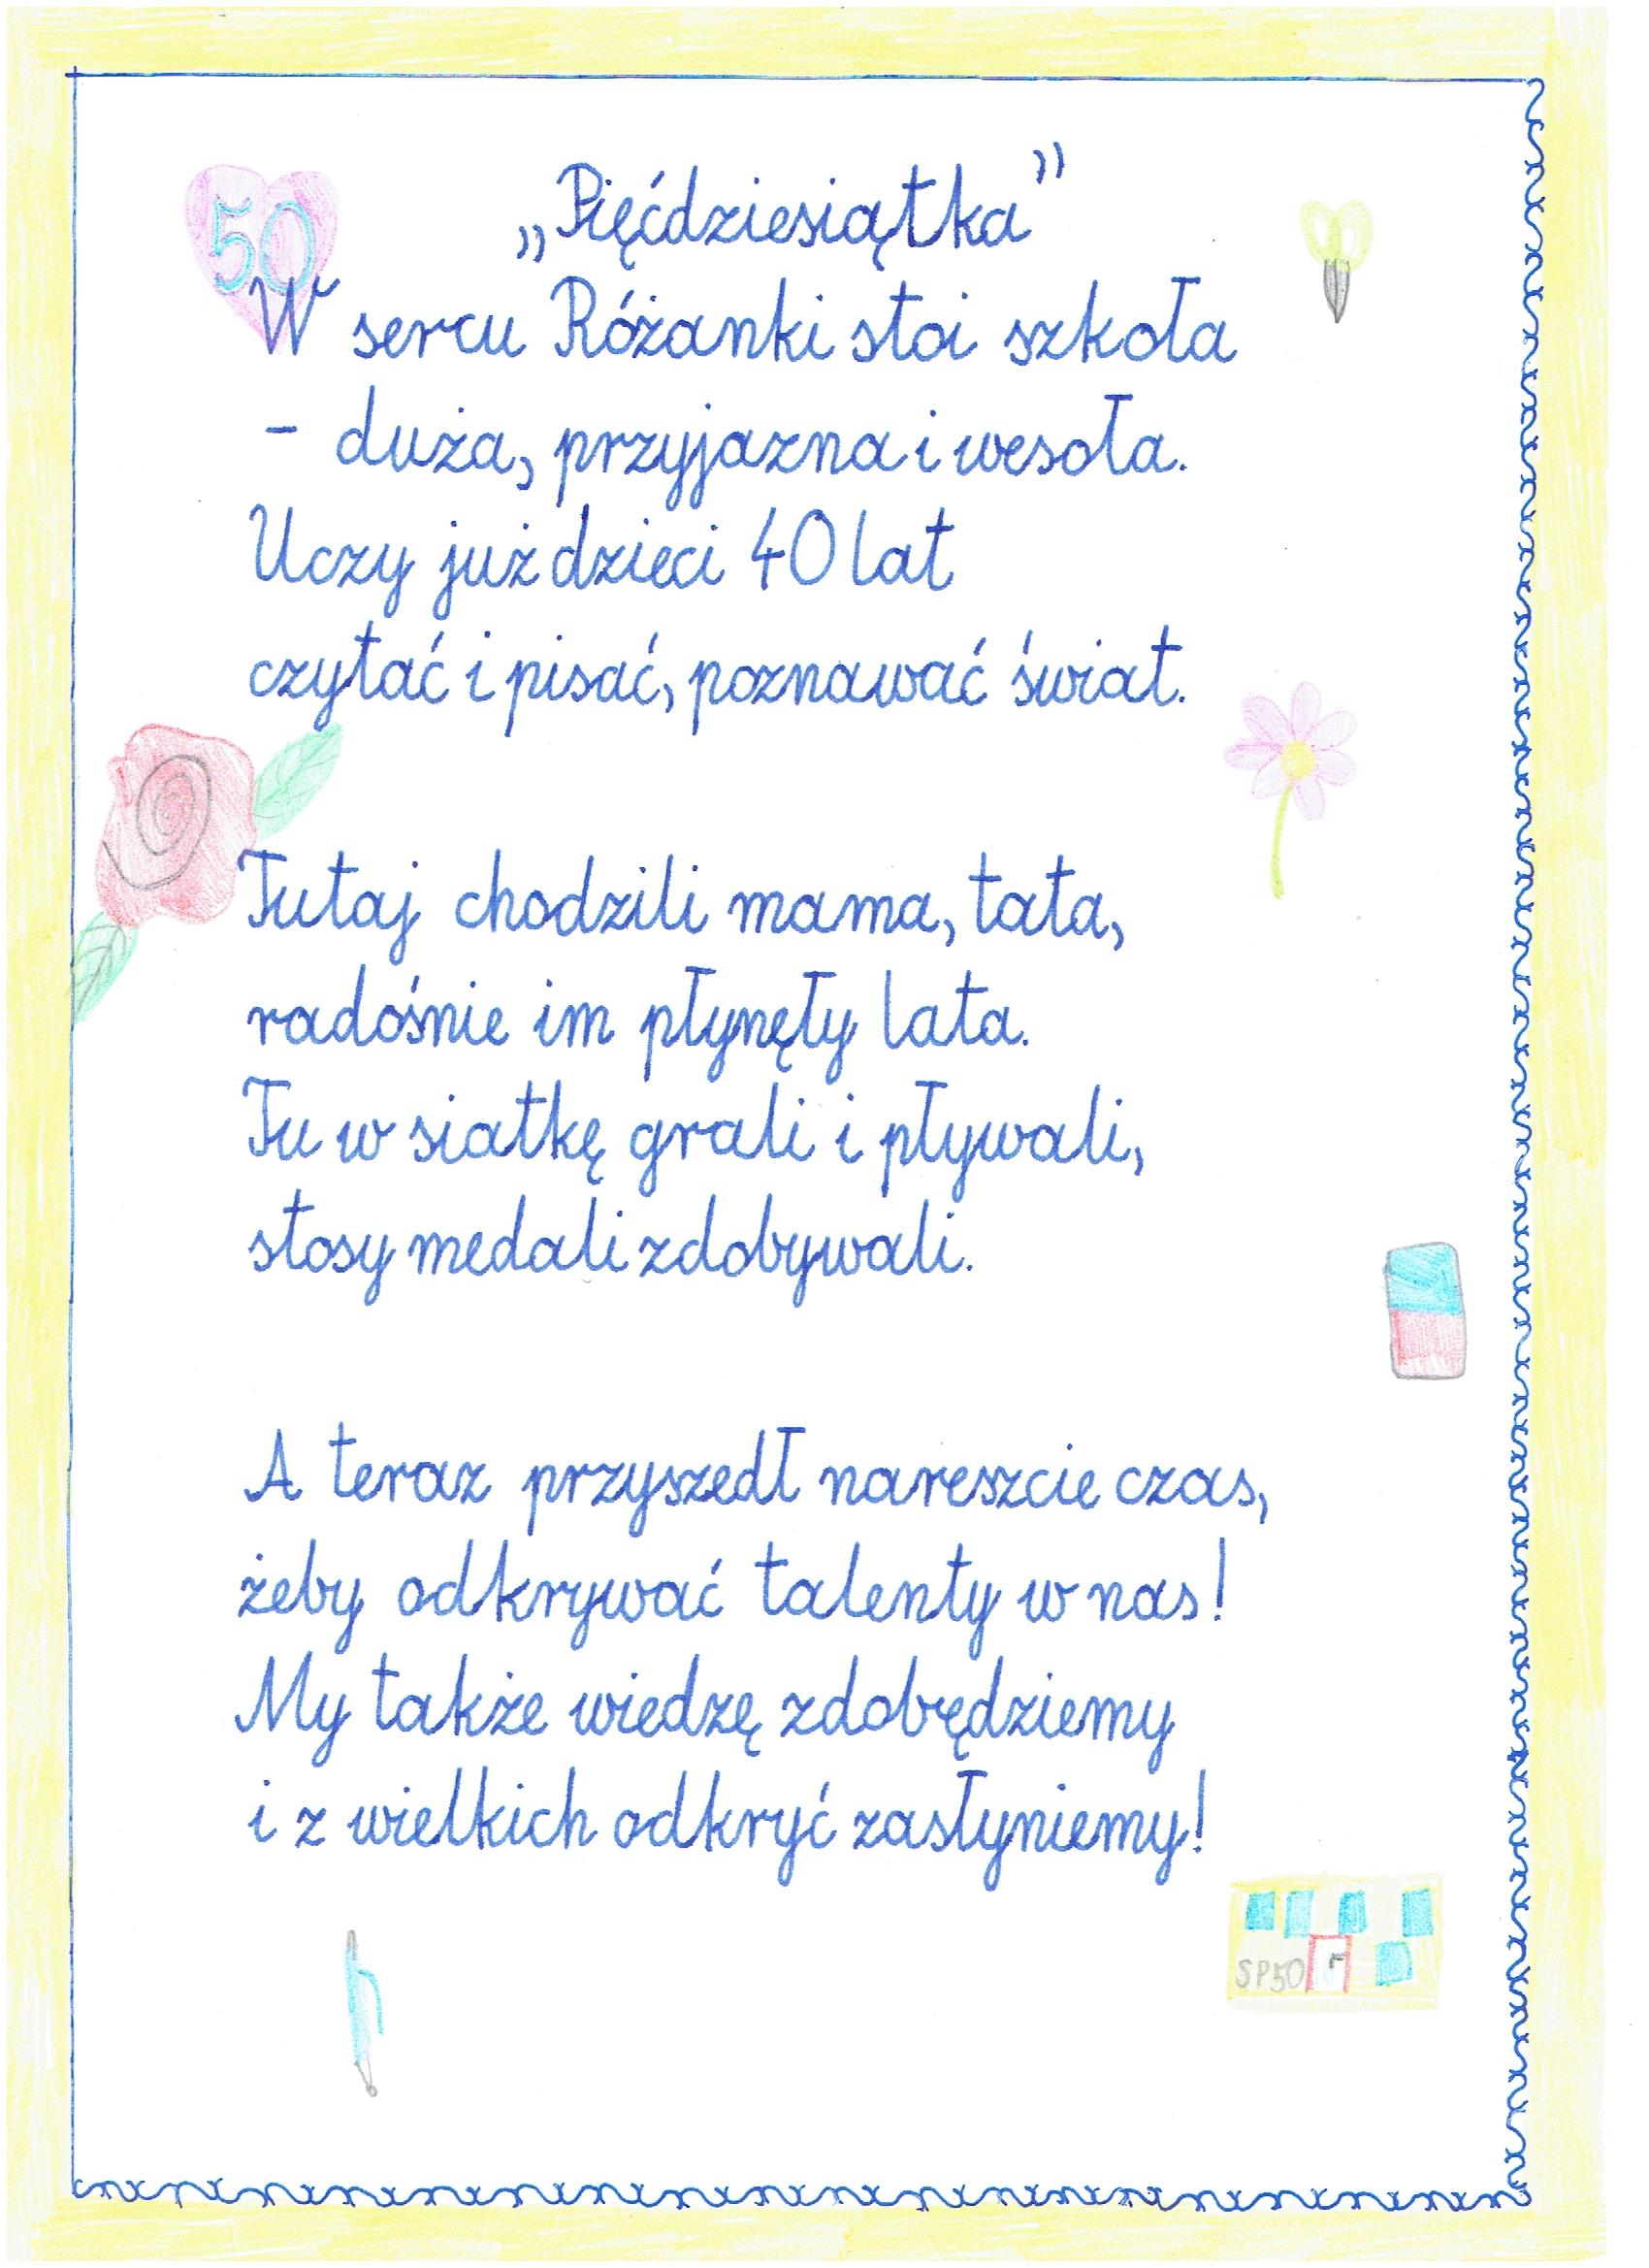 50
„Pięćdziesiątka”
W sercu Różanki stoi szkoła
- duża, przyjazna i wesoła.
Uczy już dzieci 40 lat
czytać i pisać, poznawać świat.
Tutaj chodzili mama, tata,
radośnie im płynęły lata.
Tu w siatkę grali i pływali,
stosy medali zdobywali.
A teraz przyszedł nareszcie czas,
żeby odkrywać talenty w nas!
My także wiedzę zdobędziemy
i z wielkich odkryć zasłyniemy!
SP50